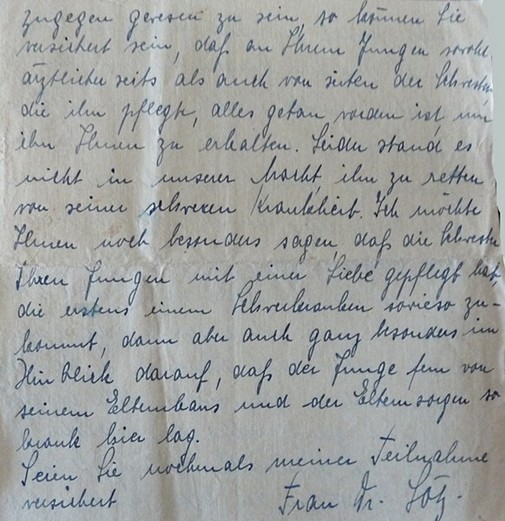 zugegen gewesen zu sein, so können Sie
versichert sein, daß an Ihrem Jungen sowohl
ärztlicherseits als auch von seiten der Schwester,
die ihn pflegte, alles getan worden ist, um
ihn Ihnen zu erhalten. Leider stand es
nicht in unserer Macht, ihn zu retten
von seiner schweren Krankheit. Ich möchte
Ihnen noch besonders sagen, daß die Schwester
Ihren Jungen mit einer Liebe gepflegt hat,
die erstens einem Schwerkranken sowieso zu-
kommt, dann aber auch ganz besonders im
Hinblick darauf, daß der Junge fern von
seinem Elternhaus und der Eltern sorgen so
krank hier lag.
Seien Sie nochmals meiner Teilnahme
versichert
Frau Dr. Götz.